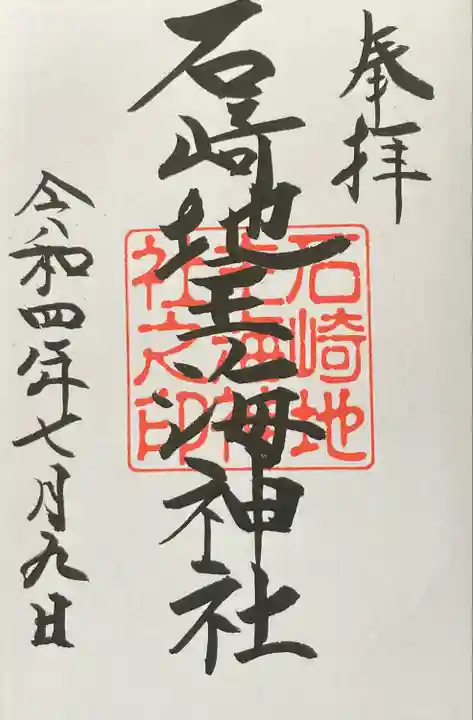 奉拝
石崎地主海神社
石崎地
主海神
社之印
令和四年七月九日